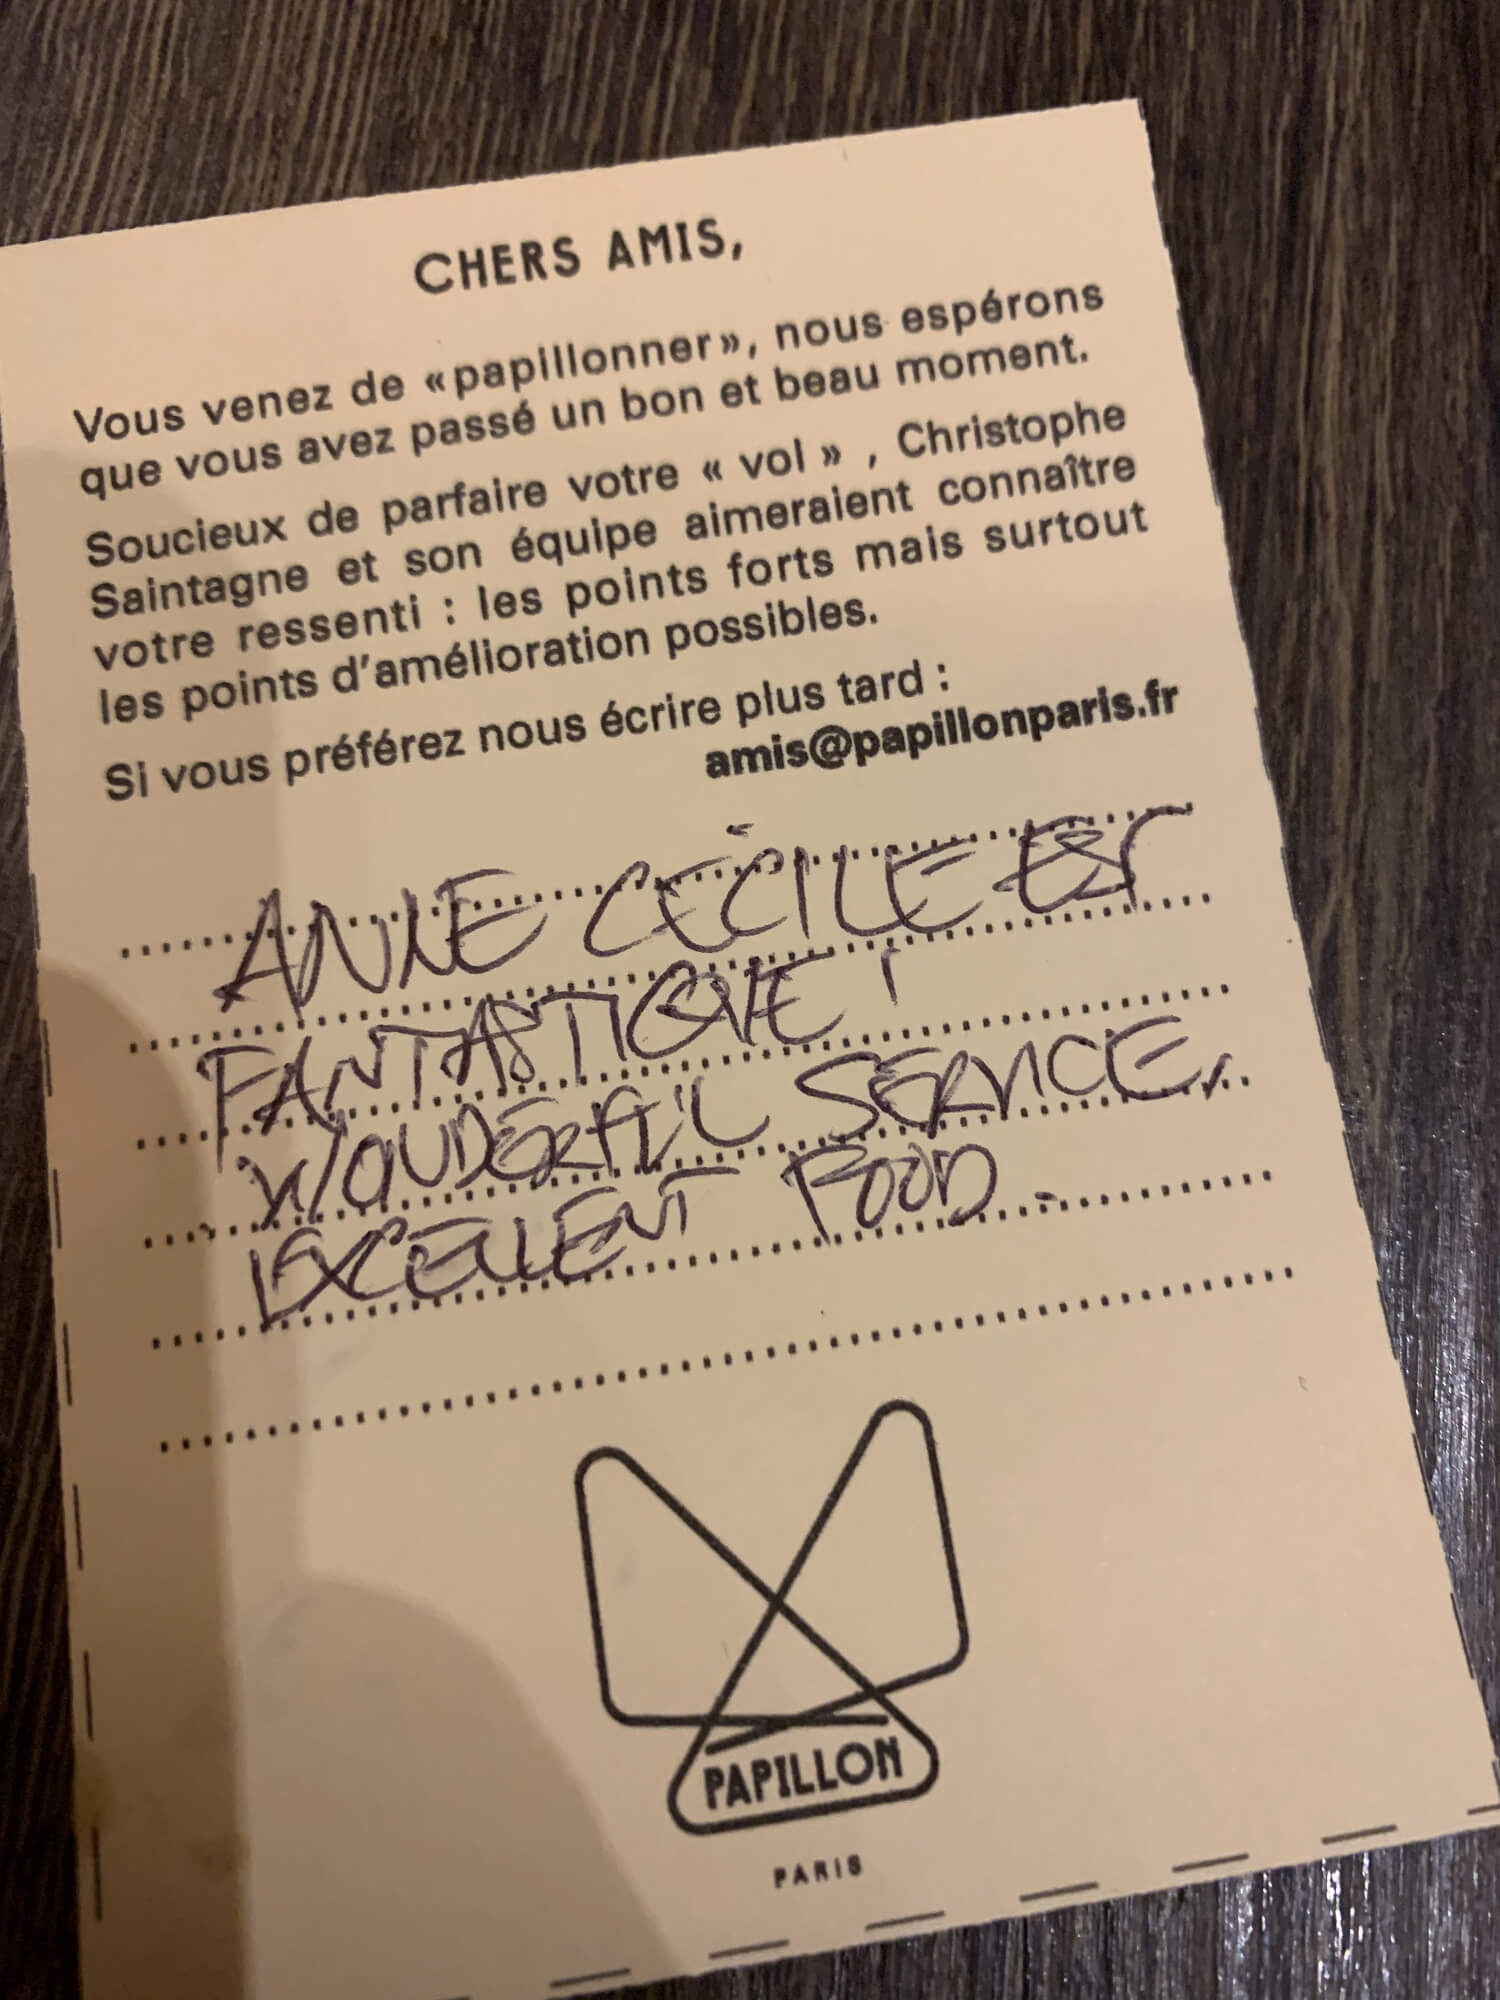 CHERS AMIS,
Vous venez de «papillonner», nous espérons
que vous avez passé un bon et beau moment.
Soucieux de parfaire votre « vol » , Christophe
Saintagne et son équipe aimeraient connaître
votre ressenti : les points forts mais surtout
les points d'amélioration possibles.
Si vous préférez nous écrire plus tard :
amis@papillonparis.fr
ANNE CÉCILE EST
FANTASTIQUE !
WONDERFUL SERVICE,
EXCELLENT FOOD.
PAPILLON
PARIS